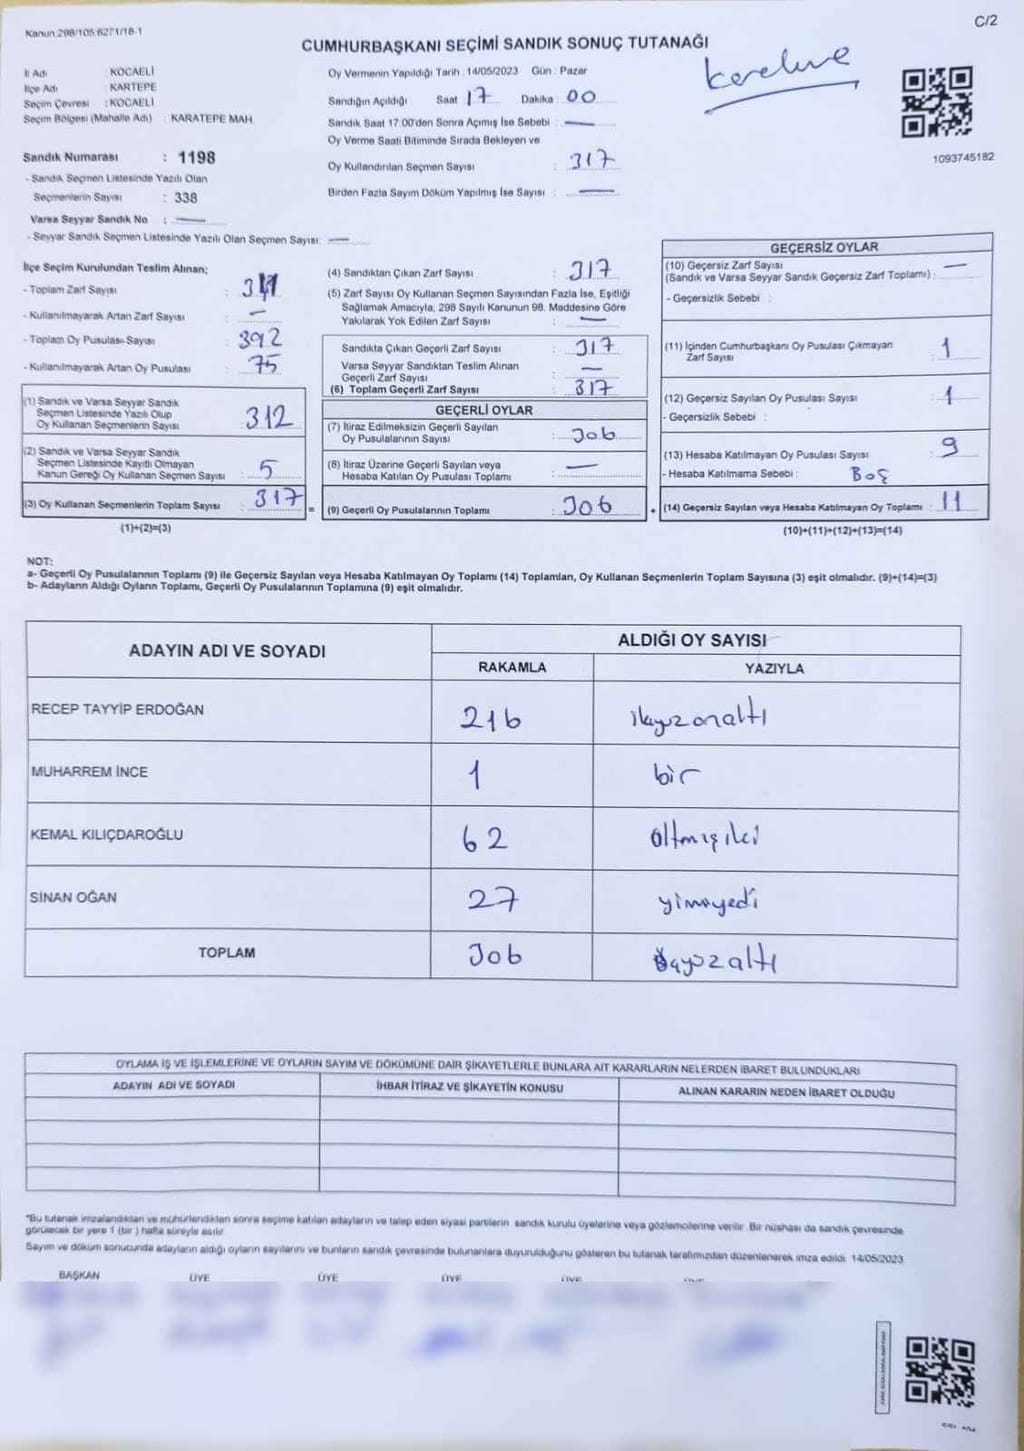 Kanun:298/105;6271/18-1
C/2
CUMHURBAŞKANI SEÇİMİ SANDIK SONUÇ TUTANAĞI
İl Adı : KOCAELİ
İlçe Adı : KARTEPE
Seçim Çevresi : KOCAELİ
Seçim Bölgesi (Mahalle Adı) : KARATEPE MAH.
Sandık Numarası : 1198
- Sandık Seçmen Listesinde Yazılı Olan
Seçmenlerin Sayısı : 338
Varsa Seyyar Sandık No : —
- Seyyar Sandık Seçmen Listesinde Yazılı Olan Seçmen Sayısı: —
Oy Vermenin Yapıldığı Tarih :14/05/2023 Gün : Pazar
Sandığın Açıldığı Saat 17 Dakika : 00
Sandık Saat 17:00'den Sonra Açımış İse Sebebi : —
Oy Verme Saati Bitiminde Sırada Bekleyen ve
Oy Kullandırılan Seçmen Sayısı : 317
Birden Fazla Sayım Döküm Yapılmış İse Sayısı : —
1093745182
İlçe Seçim Kurulundan Teslim Alınan;
- Toplam Zarf Sayısı :
- Kullanılmayarak Artan Zarf Sayısı : —
- Toplam Oy Pusulası Sayısı : 392
- Kullanılmayarak Artan Oy Pusulası : 75
(1) Sandık ve Varsa Seyyar Sandık
Seçmen Listesinde Yazılı Olup
Oy Kullanan Seçmenlerin Sayısı : 312
(2) Sandık ve Varsa Seyyar Sandık
Seçmen Listesinde Kayıtlı Olmayan
Kanun Gereği Oy Kullanan Seçmen Sayısı : 5
(3) Oy Kullanan Seçmenlerin Toplam Sayısı : 317
(1)+(2)=(3)
(4) Sandıktan Çıkan Zarf Sayısı : 317
(5) Zarf Sayısı Oy Kullanan Seçmen Sayısından Fazla İse, Eşitliği
Sağlamak Amacıyla, 298 Sayılı Kanunun 98. Maddesine Göre
Yakılarak Yok Edilen Zarf Sayısı : —
Sandıkta Çıkan Geçerli Zarf Sayısı : 317
Varsa Seyyar Sandıktan Teslim Alınan
Geçerli Zarf Sayısı : —
(6) Toplam Geçerli Zarf Sayısı : 317
GEÇERLİ OYLAR
(7) İtiraz Edilmeksizin Geçerli Sayılan
Oy Pusulalarının Sayısı : 306
(8) İtiraz Üzerine Geçerli Sayılan veya
Hesaba Katılan Oy Pusulası Toplamı : —
= (9) Geçerli Oy Pusulalarının Toplamı : 306
GEÇERSİZ OYLAR
(10) Geçersiz Zarf Sayısı
(Sandık ve Varsa Seyyar Sandık Geçersiz Zarf Toplamı) : —
- Geçersizlik Sebebi :
(11) İçinden Cumhurbaşkanı Oy Pusulası Çıkmayan
Zarf Sayısı : 1
(12) Geçersiz Sayılan Oy Pusulası Sayısı : 1
- Geçersizlik Sebebi :
(13) Hesaba Katılmayan Oy Pusulası Sayısı : 9
- Hesaba Katılmama Sebebi : BOŞ
+ (14) Geçersiz Sayılan veya Hesaba Katılmayan Oy Toplamı : 11
(10)+(11)+(12)+(13)=(14)
NOT:
a- Geçerli Oy Pusulalarının Toplamı (9) ile Geçersiz Sayılan veya Hesaba Katılmayan Oy Toplamı (14) Toplamları, Oy Kullanan Seçmenlerin Toplam Sayısına (3) eşit olmalıdır. (9)+(14)=(3)
b- Adayların Aldığı Oyların Toplamı, Geçerli Oy Pusulalarının Toplamına (9) eşit olmalıdır.
ADAYIN ADI VE SOYADI ALDIĞI OY SAYISI
RAKAMLA YAZIYLA
RECEP TAYYİP ERDOĞAN 216 ikiyüzonaltı
MUHARREM İNCE 1 bir
KEMAL KILIÇDAROĞLU 62 altmışiki
SİNAN OĞAN 27 yirmiyedi
TOPLAM 306 üçyüzaltı
OYLAMA İŞ VE İŞLEMLERİNE VE OYLARIN SAYIM VE DÖKÜMÜNE DAİR ŞİKAYETLERLE BUNLARA AİT KARARLARIN NELERDEN İBARET BULUNDUKLARI
ADAYIN ADI VE SOYADI İHBAR İTİRAZ VE ŞİKAYETİN KONUSU ALINAN KARARIN NEDEN İBARET OLDUĞU
*Bu tutanak imzalandıktan ve mühürlendikten sonra seçime katılan adayların ve talep eden siyasi partilerin sandık kurulu üyelerine veya gözlemcilerine verilir. Bir nüshası da sandık çevresinde
görülecek bir yere 1 (bir) hafta süreyle asılır.
Sayım ve döküm sonucunda adayların aldığı oyların sayılarını ve bunların sandık çevresinde bulunanlara duyurulduğunu gösteren bu tutanak tarafımızdan düzenlenerek imza edildi. 14/05/2023
BAŞKAN ÜYE ÜYE ÜYE ÜYE ÜYE